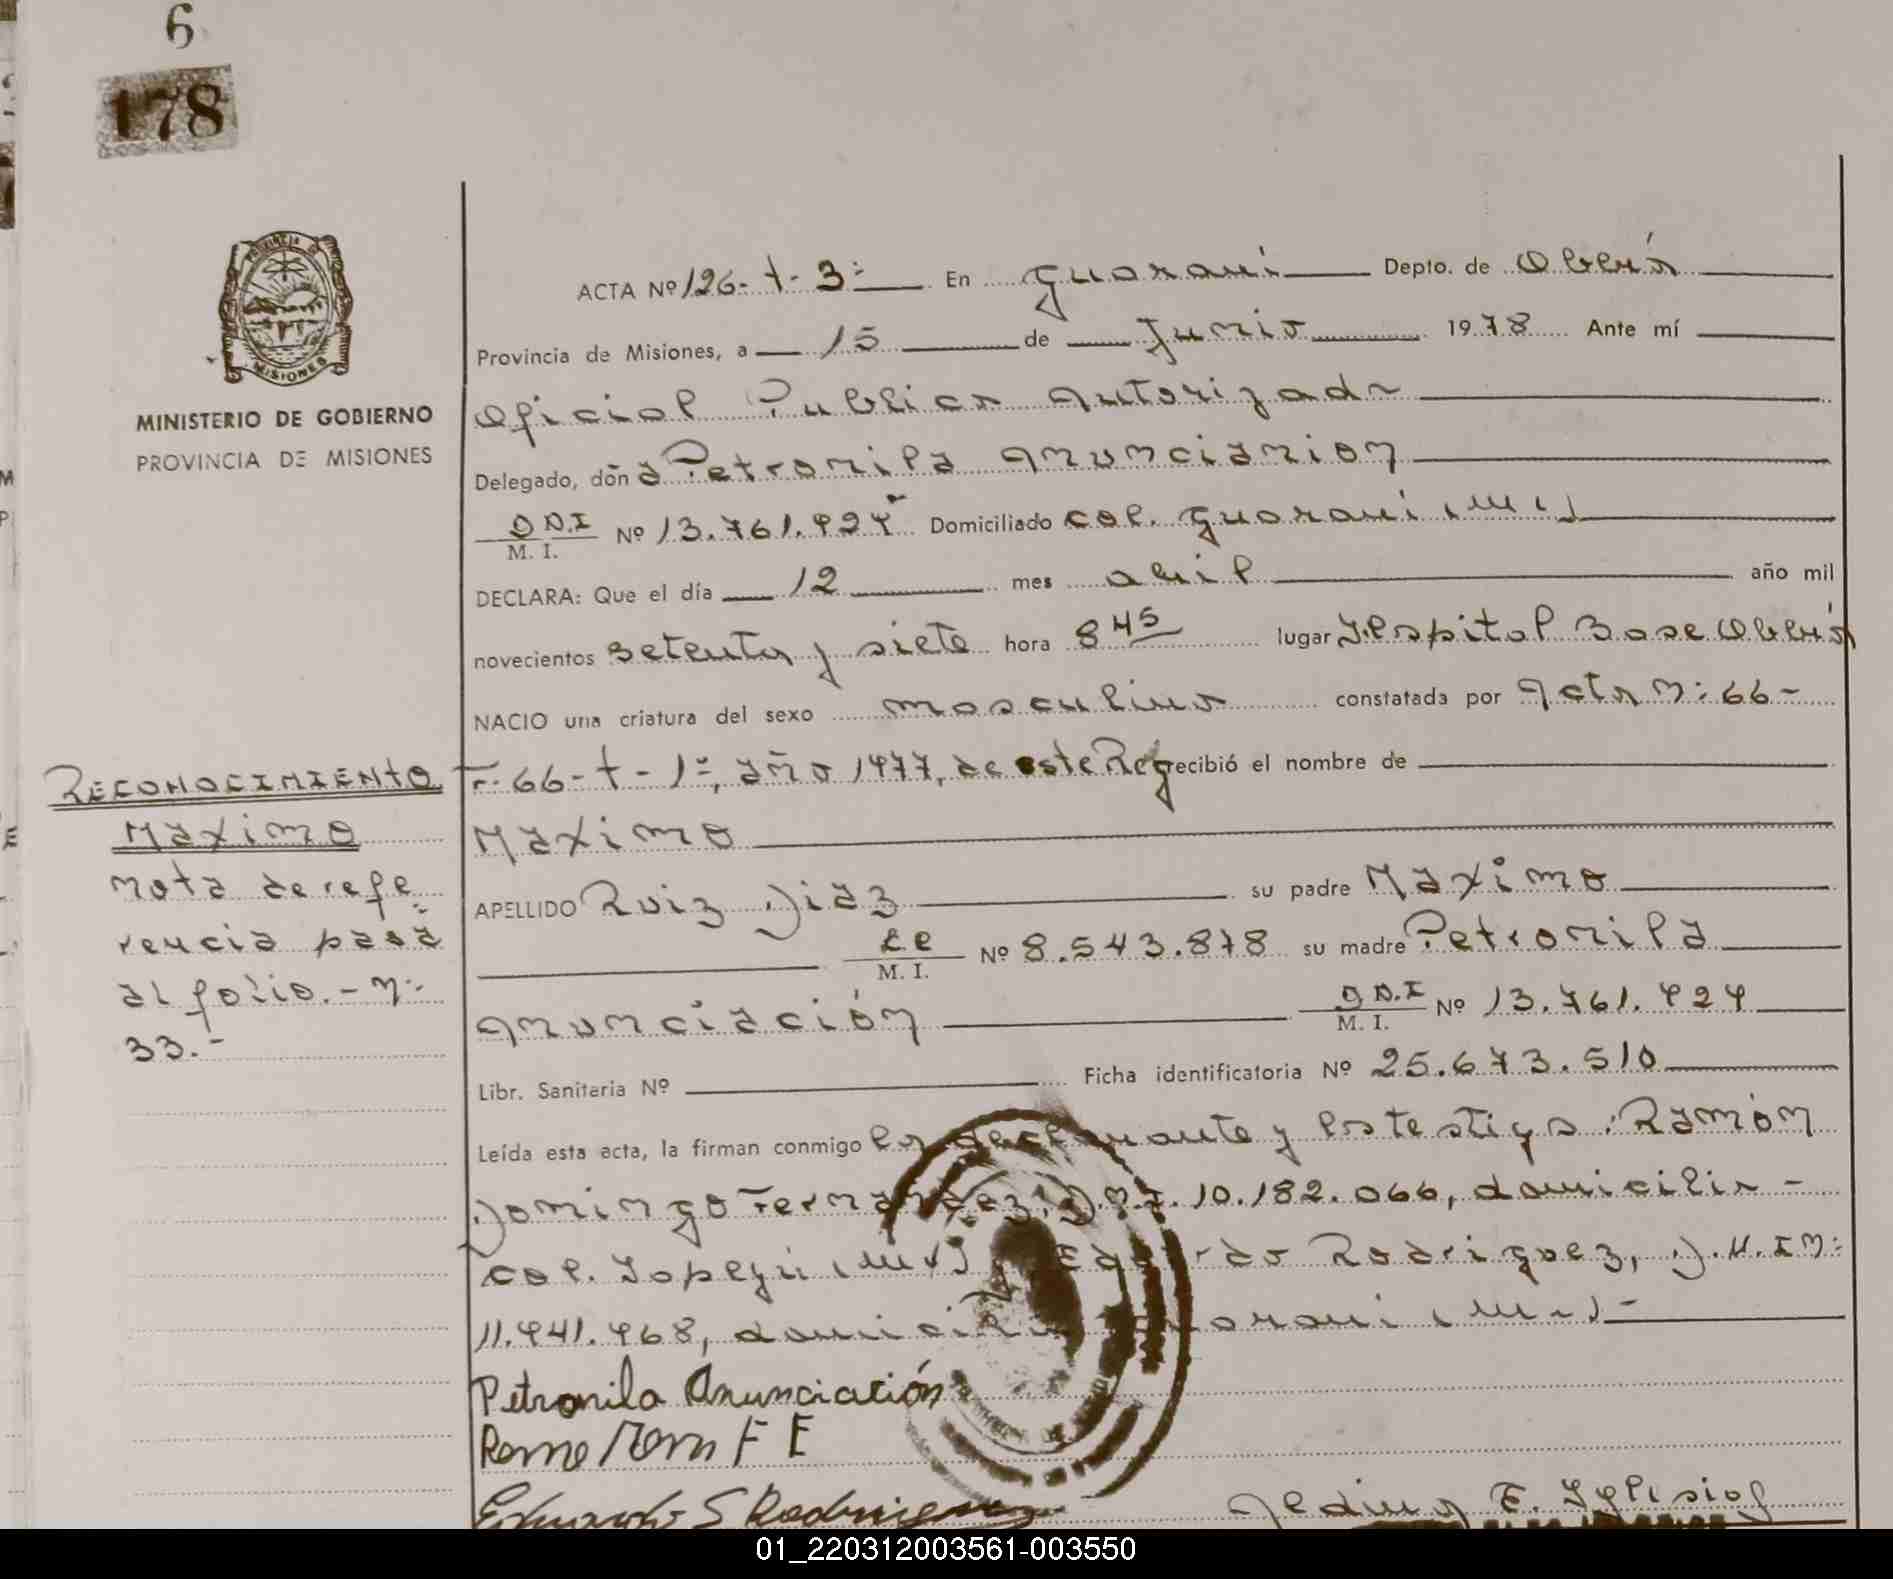 6
178
PROVINCIA DE
MISIONES
MINISTERIO DE GOBIERNO
PROVINCIA DE MISIONES
ACTA Nº 126- t- 3º En Guaraní Depto. de Oberá
Provincia de Misiones, a 15 de Junio 1978 Ante mí
Oficial Publica Autorizada
Delegado, doña Petronila Anuncianion
D.N.I M. I. Nº 13.761.424 Domiciliado Col. Guarani
DECLARA: Que el día 12 mes abril año mil
novecientos setenta y siete hora 8 45 lugar Hospital Base Oberá
NACIO una criatura del sexo masculino constatada por Acta Nº 66-
Fº 66-t-1º, año 1977, de este Reg recibió el nombre de
Maximo
APELLIDO Ruiz Diaz su padre Maximo
L e M. I. Nº 8.543.878 su madre Petronila
Anunciación D.N.I M. I. Nº 13.761.424
Libr. Sanitaria Nº Ficha identificatoria Nº 25.673.510
Leída esta acta, la firman conmigo la declarante y los testigos: Ramón
Domingo Fernandez, D.N.I. 10.182.066, domicilio -
Col. y Eduardo Rodriguez, D.N.I Nº:
11.441.468, domicilio Guarani
Petronila Anunciación
F E
Eduardo S Rodriguez
E.
RECONOCIMIENTO
MaXimo
nota de refe
rencia pasa
al folio.- Nº
33.-
01_220312003561-003550